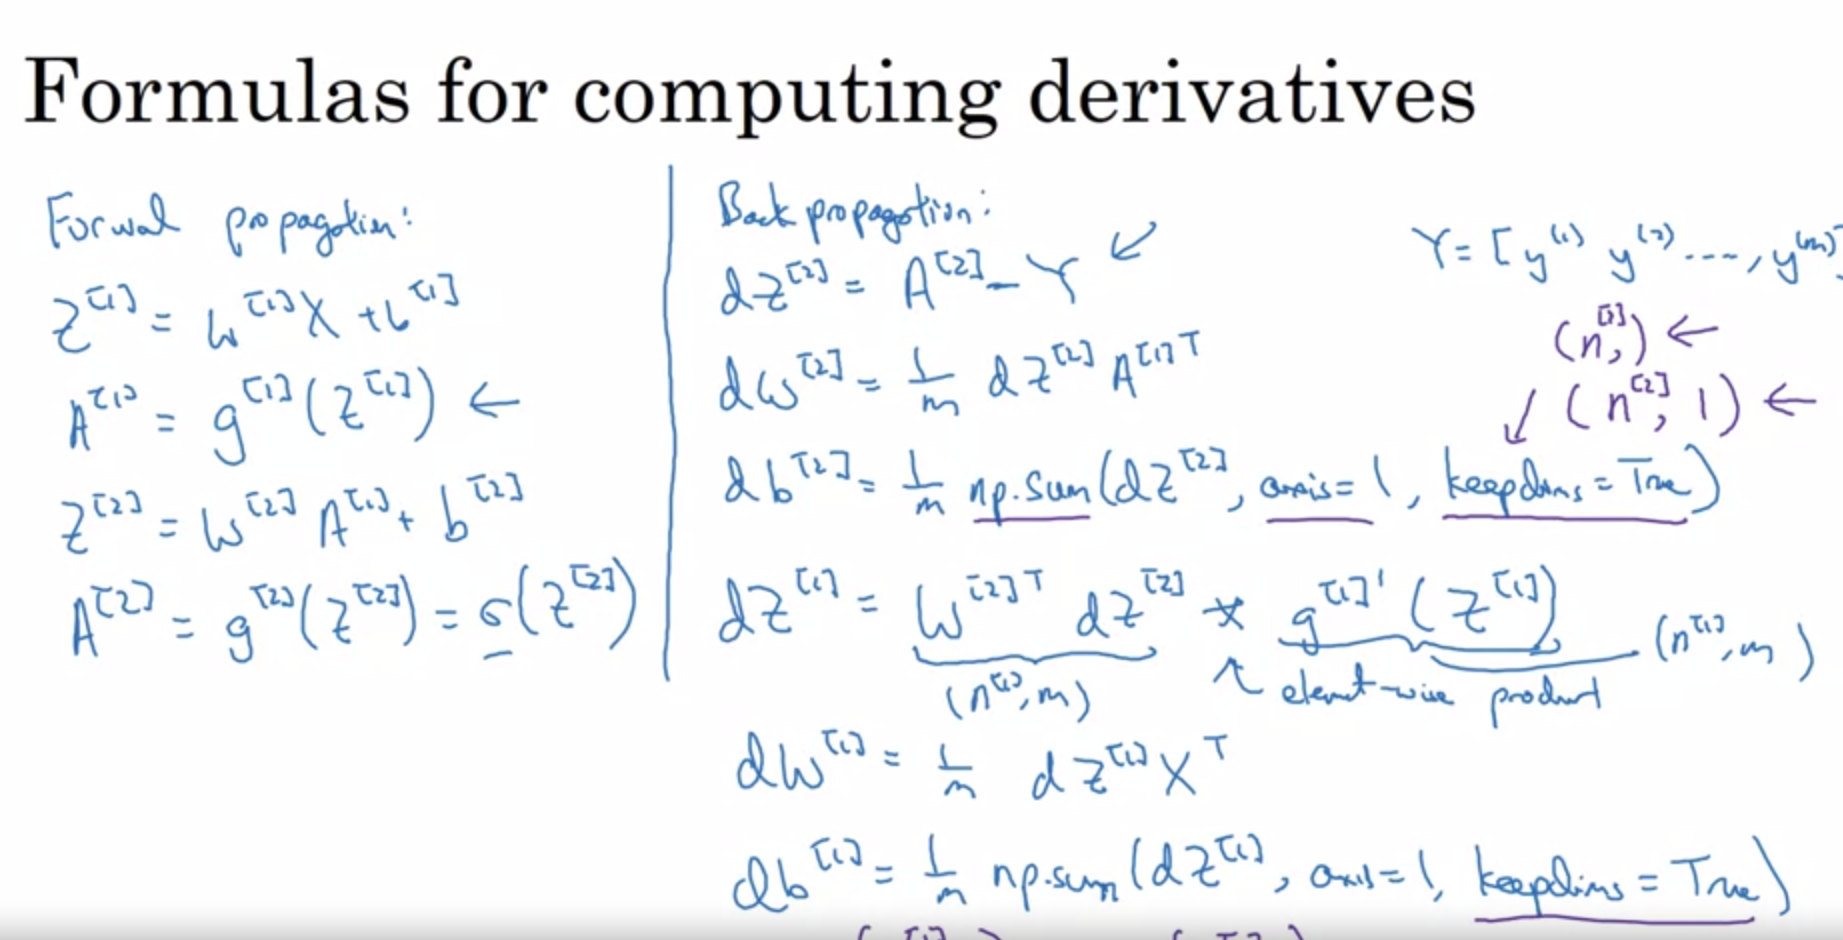 Formulas for computing derivatives
Forwad propagation:
Z^[1] = W^[1] X + b^[1]
A^[1] = g^[1](Z^[1]) ←
Z^[2] = W^[2] A^[1] + b^[2]
A^[2] = g^[2](Z^[2]) = σ(Z^[2])
Back propagation:
dZ^[2] = A^[2] - Y ↙
dW^[2] = 1/m dZ^[2] A^[1]T
db^[2] = 1/m np.sum(dZ^[2], axis=1, keepdims=True)
dZ^[1] = W^[2]T dZ^[2] * g^[1]'(Z^[1])
(n^[1], m) ↖ element-wise product (n^[1], m)
dW^[1] = 1/m dZ^[1] X^T
db^[1] = 1/m np.sum(dZ^[1], axis=1, keepdims=True)
Y = [y^(1) y^(2) ----, y^(m)]
(n^[2],) ←
↙ (n^[2], 1) ←